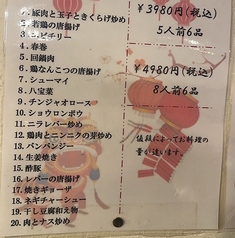 豚肉と玉子ときくらげ炒め
2. 若鶏の唐揚げ
3. エビチリー
4. 春巻
5. 回鍋肉
6. 鶏なんこつの唐揚げ
7. シューマイ
8. 八宝菜
9. チンジャオロース
10. ショウロンポウ
11. ニラレバー炒め
12. 鶏肉とニンニクの芽炒め
13. バンバンジー
14. 生姜焼き
15. 酢豚
16. レバーの唐揚げ
17. 焼きギョーザ
18. ネギチャーシュー
19. 干し豆腐和え物
20. 肉とナス炒め
¥3980円(税込)
5人前6品
¥4980円(税込)
8人前6品
値段によってお料理の
量が違います。